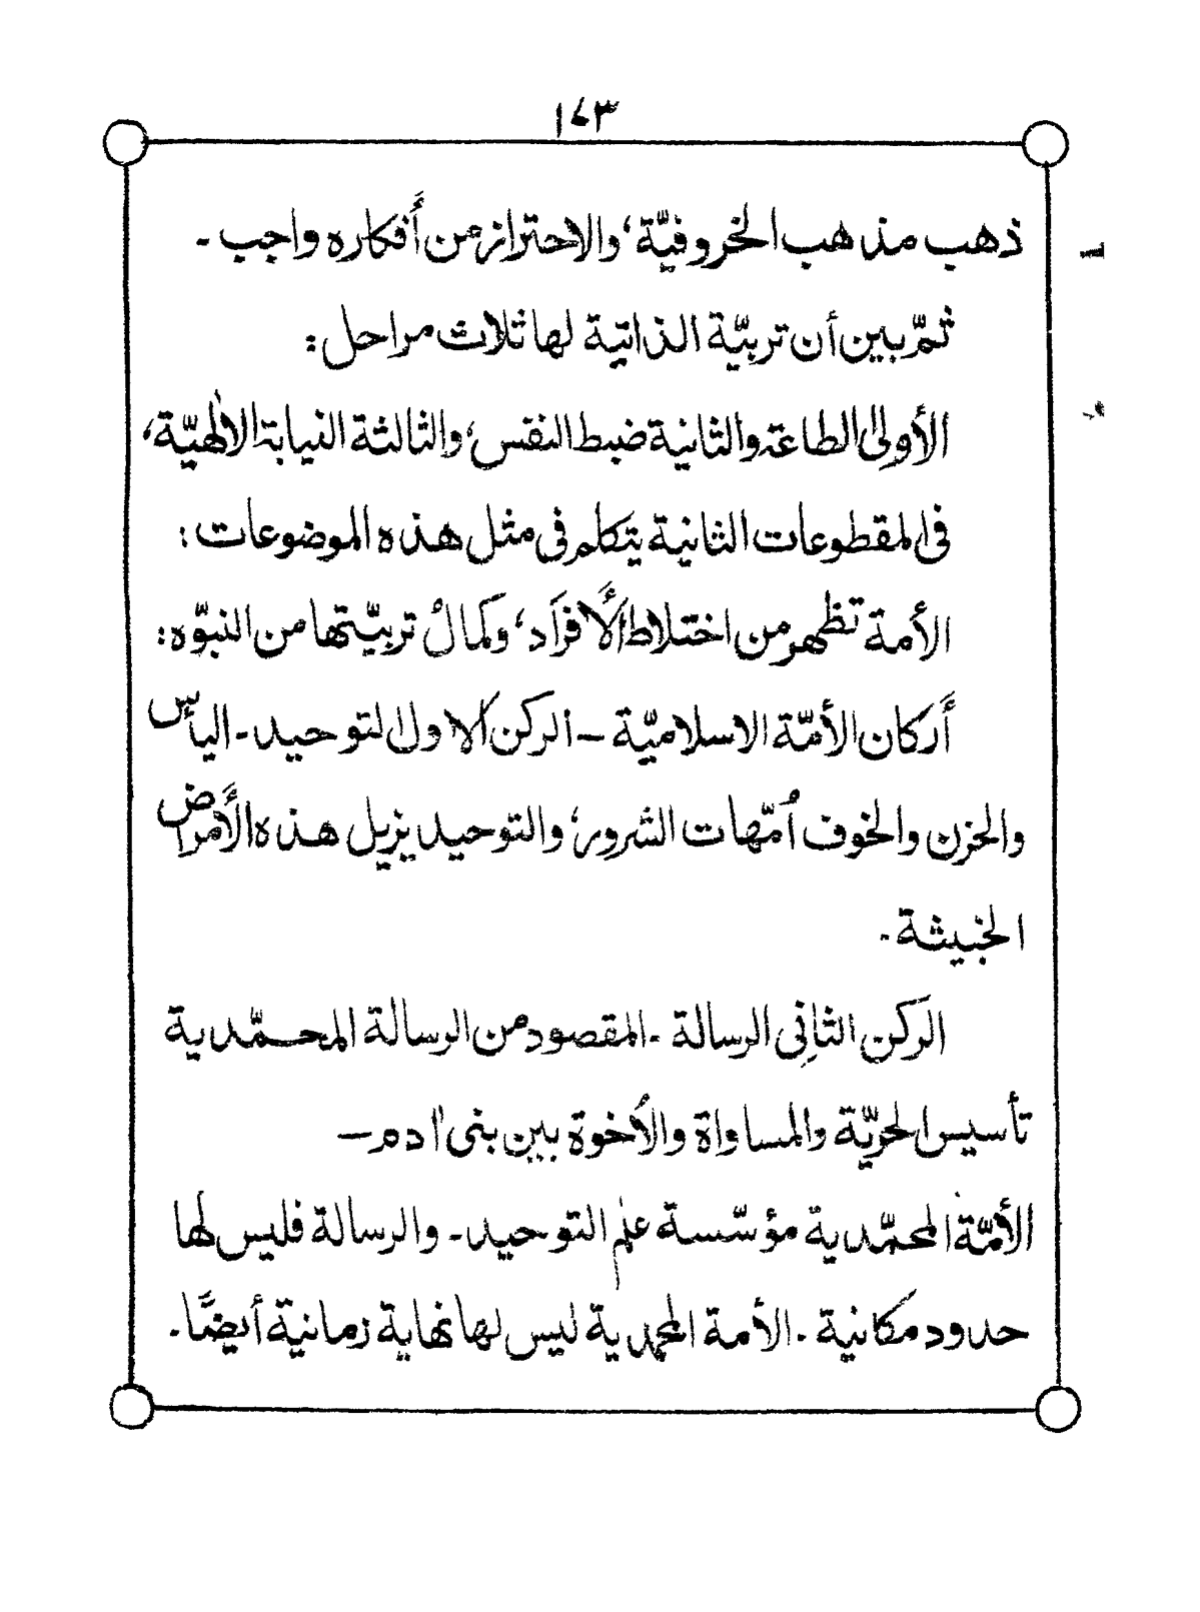 ١٤٣
ذهب مذهب الخروفيّة، والاحتراز من أَفكاره واجب ۔
ثمّ بين أن تربيّة الذاتية لها ثلاث مراحل :
الأولىٰ الطاعة والثانية ضبط النفس، والثالثة النيابة الالٰهيّة،
فى المقطوعات الثانية يتكلم فى مثل هذه الموضوعات :
الأمة تظهر من اختلاط الأَفرَاد، وكمالُ تربيّتها من النبوّه :
أَركان الأمّة الاسلاميّة – الركن الاول التوحيد ۔ اليأس
والحزن والخوف اُمّهات الشرور، والتوحيد يزيل هذه الأَمراض
الخبيثة ۔
الركن الثانِى الرسالة ۔ المقصود من الرسالة المحمّدية
تأسيس الحريّة والمساواة والاُخوة بين بنى اٰدم –
الأمّة المحمّدية مؤسّسة علٰى التوحيد ۔ والرسالة فليس لها
حدود مكانية ۔ الأمة المحمدية ليس لها نهاية زمانية أيضًا ۔